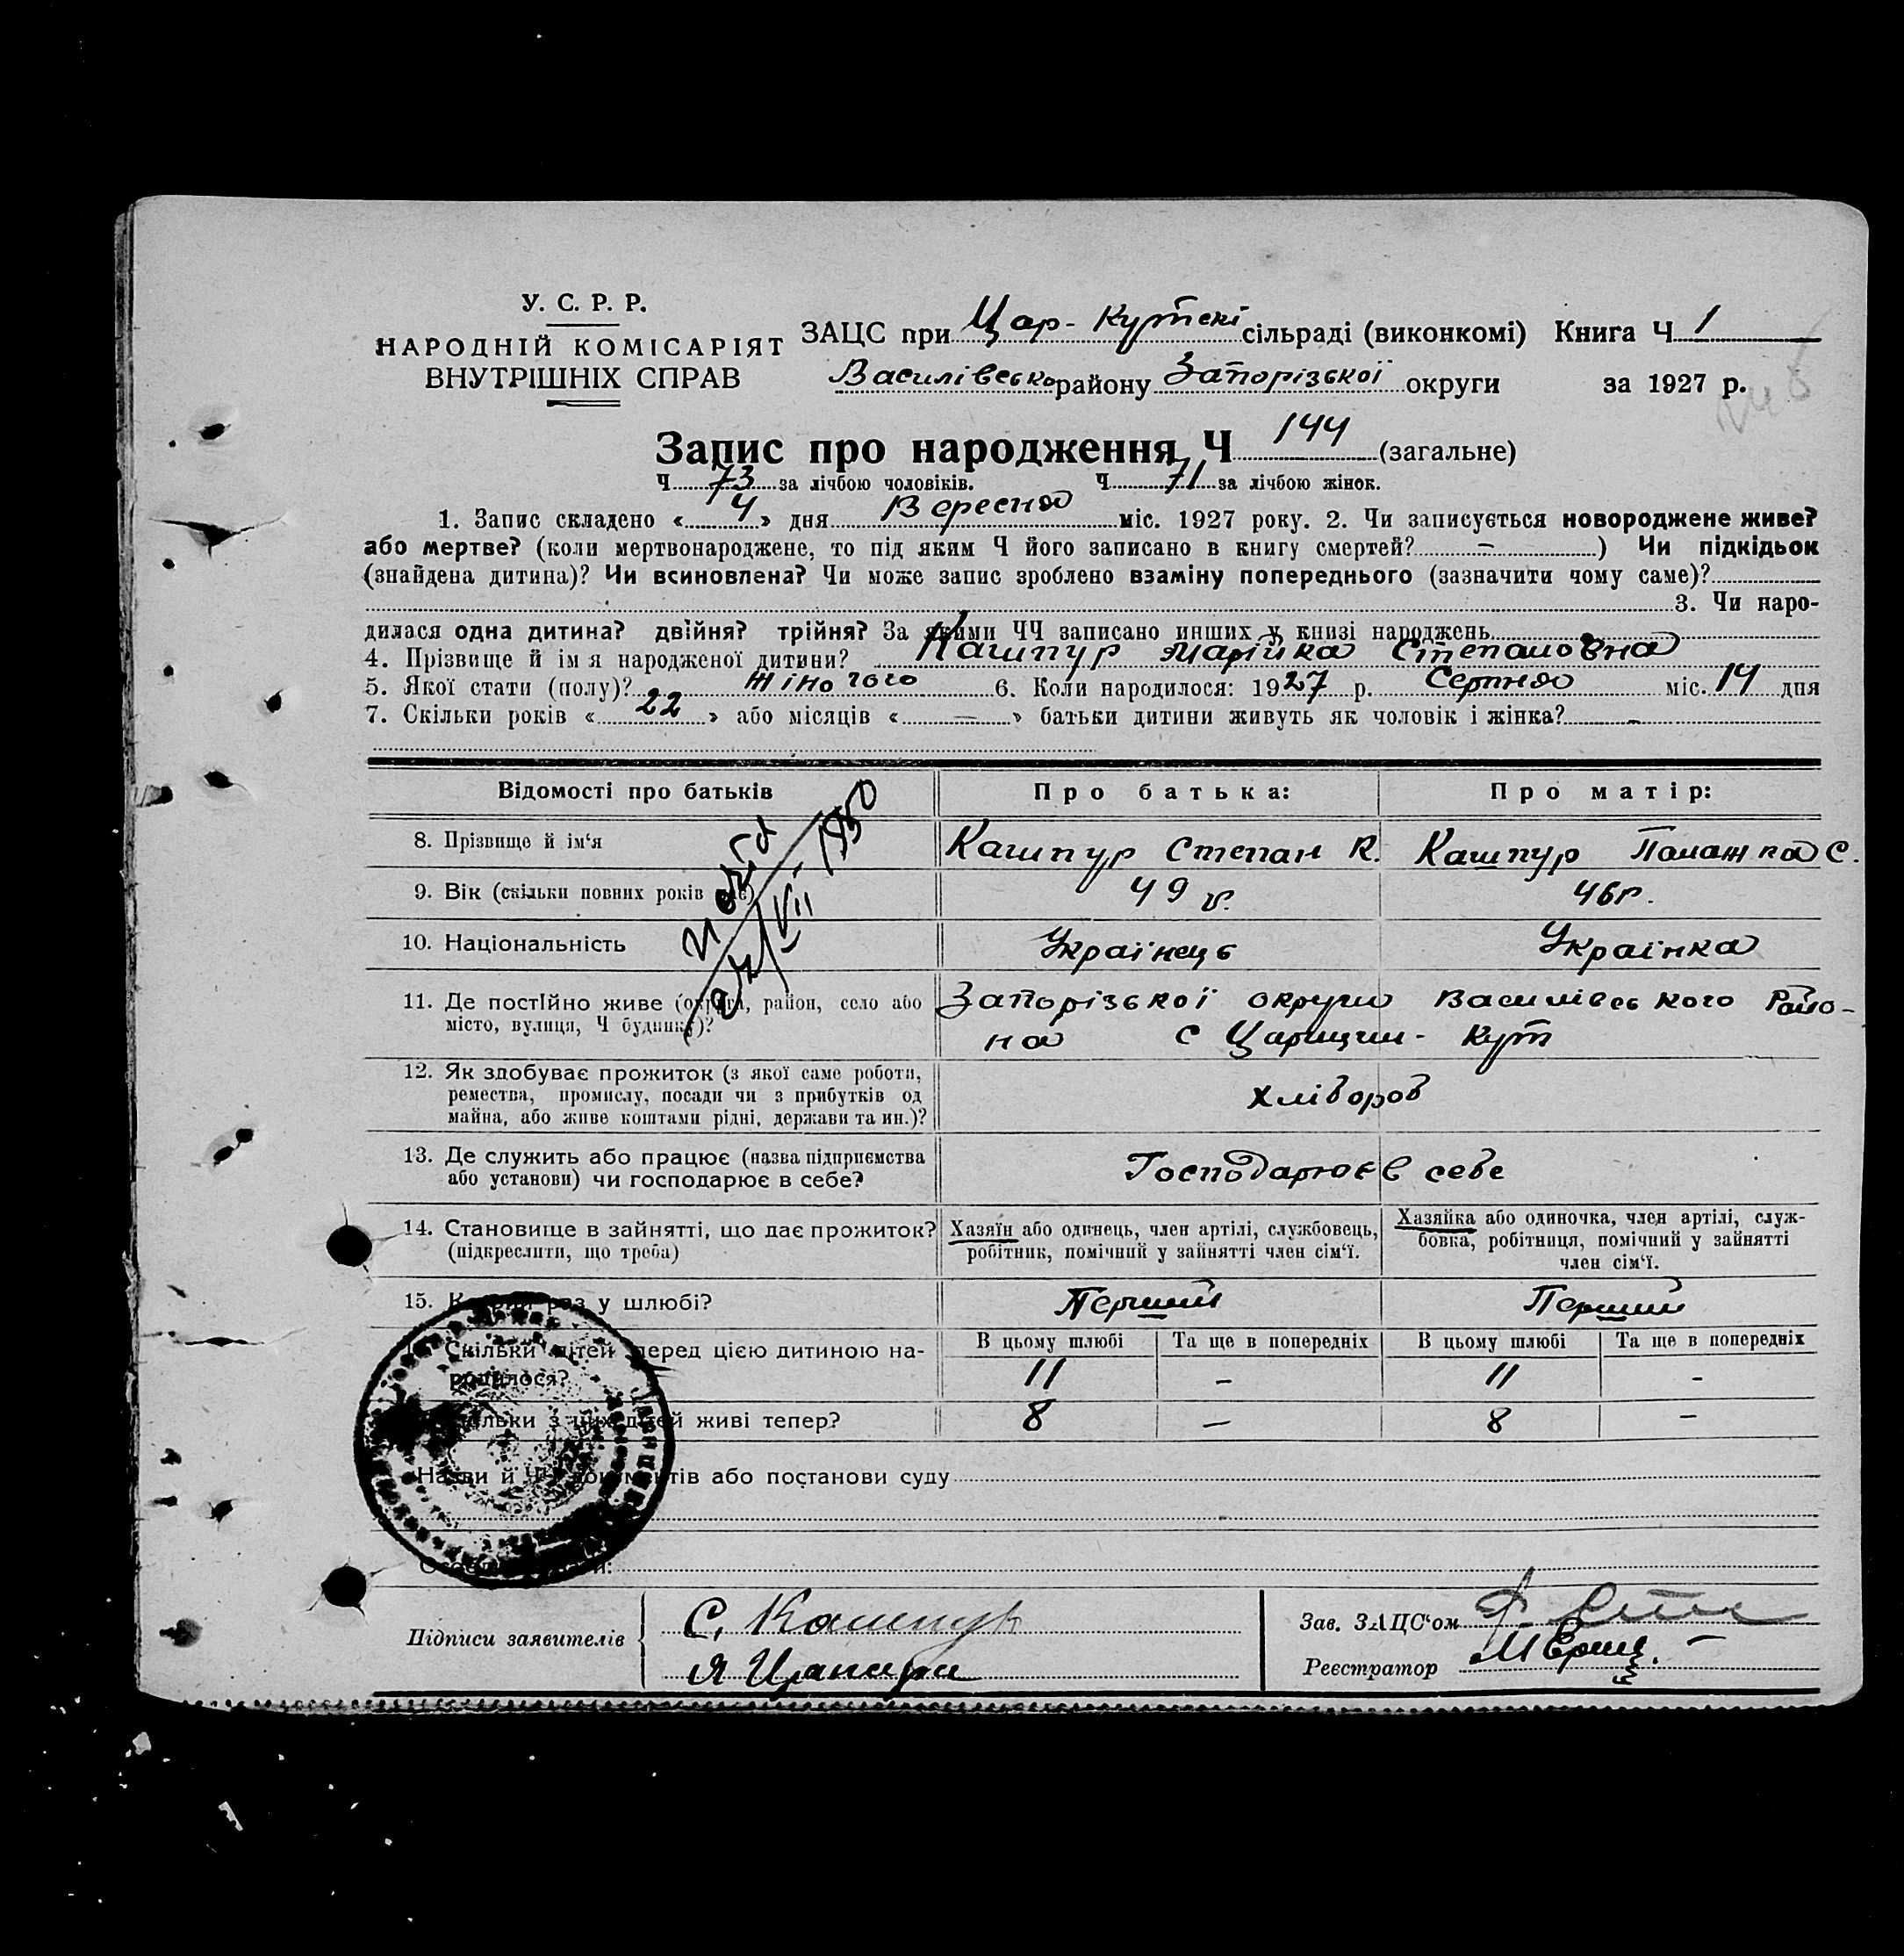 У. С. Р. Р.
НАРОДНІЙ КОМІСАРІЯТ
ВНУТРІШНІХ СПРАВ
ЗАЦС при Цар-Кутскі сільраді (виконкомі) Книга Ч 1
Василівсько району Запорізької округи за 1927 р.
Запис про народження Ч 144 (загальне)
Ч 73 за лічбою чоловіків. Ч 71 за лічбою жінок.
1. Запис складено « 4 » дня Вересня міс. 1927 року. 2. Чи записується новороджене живе?
або мертве? (коли мертвонароджене, то під яким Ч його записано в книгу смертей? — ) Чи підкідьок
(знайдена дитина)? Чи всиновлена? Чи може запис зроблено взаміну попереднього (зазначити чому саме)?
3. Чи наро-
дилася одна дитина? двійня? трійня? За якими ЧЧ записано инших у книзі народжень
4. Прізвище й ім я народженої дитини? Кашпур Марійка Степановна
5. Якої стати (полу)? жіночого 6. Коли народилося: 1927 р. Серпня міс. 14 дня
7. Скільки років « 22 » або місяців « — » батьки дитини живуть як чоловік і жінка? -
Відомості про батьків Про батька: Про матір:
8. Прізвище й ім‘я Кашпур Степан К. Кашпур Палажка С.
9. Вік (скільки повних років має) 49 р. 46 р.
10. Національність Українець Українка
11. Де постійно живе (округа, район, село або Запорізької округи Василівського Райо-
місто, вулиця, Ч будинку)? на с Царицин-Кут
12. Як здобуває прожиток (з якої саме роботи,
ремества, промислу, посади чи з прибутків од
майна, або живе коштами рідні, держави та ин.)? хліборов
13. Де служить або працює (назва підприємства
або установи) чи господарює в себе? Господарює в себе
14. Становище в зайнятті, що дає прожиток? Хазяїн або одинець, член артілі, службовець, Хазяйка або одиночка, член артілі, служ-
(підкреслити, що треба) робітник, помічний у зайнятті член сім‘ї. бовка, робітниця, помічний у зайнятті
член сім‘ї.
15. Котрий раз у шлюбі? Перший Перший
В цьому шлюбі Та ще в попередніх В цьому шлюбі Та ще в попередніх
Скільки дітей перед цією дитиною на-
родилося? 11 - 11 -
Скільки з цих дітей живі тепер? 8 — 8 -
Назви й ЧЧ документів або постанови суду
VII 1950
Підписи заявителів С. Кашпур
Я
Зав. ЗАЦС‘ом
Реєстратор